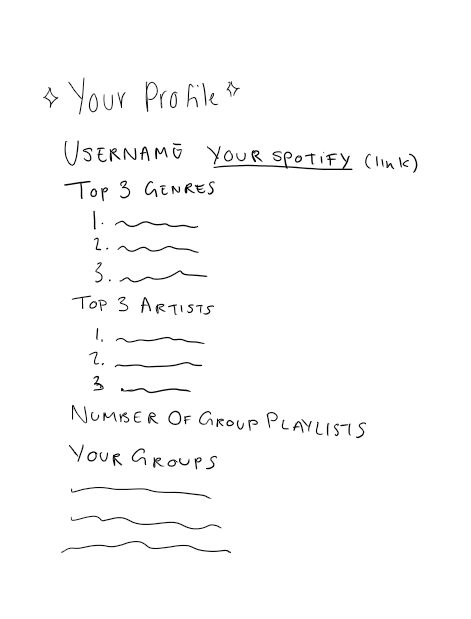 Your Profile
USERNAME YOUR SPOTIFY (link)
TOP 3 GENRES
1.
2.
3.
TOP 3 ARTISTS
1.
2.
3
NUMBER OF GROUP PLAYLISTS
YOUR GROUPS